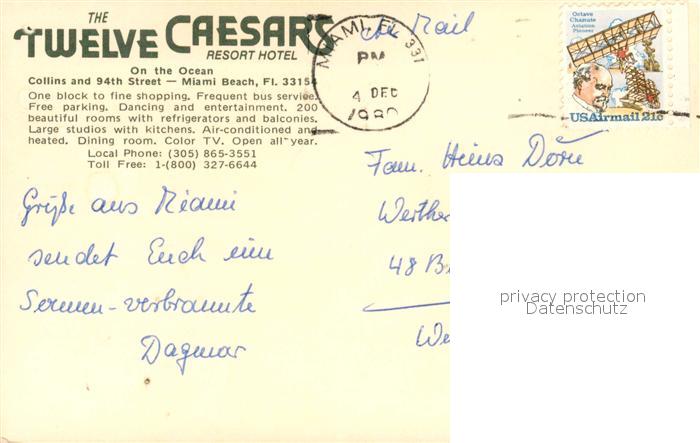 THE
TWELVE CAESARS
RESORT HOTEL
On the Ocean
Collins and 94th Street — Miami Beach, Fl. 33154
One block to fine shopping. Frequent bus service.
Free parking. Dancing and entertainment. 200
beautiful rooms with refrigerators and balconies.
Large studios with kitchens. Air-conditioned and
heated. Dining room. Color TV. Open all year.
Local Phone: (305) 865-3551
Toll Free: 1-(800) 327-6644
MIAMI, FL 331
PM
4 DEC
1980
Mail
Octave
Chanute
Aviation
Pioneer
USAirmail 21c
Fam. Heinz Dörr
Werthe
48 B
We
Grüße aus Miami
sendet Euch eine
Sonnen-verbrannte
Dagmar
privacy protection
Datenschutz